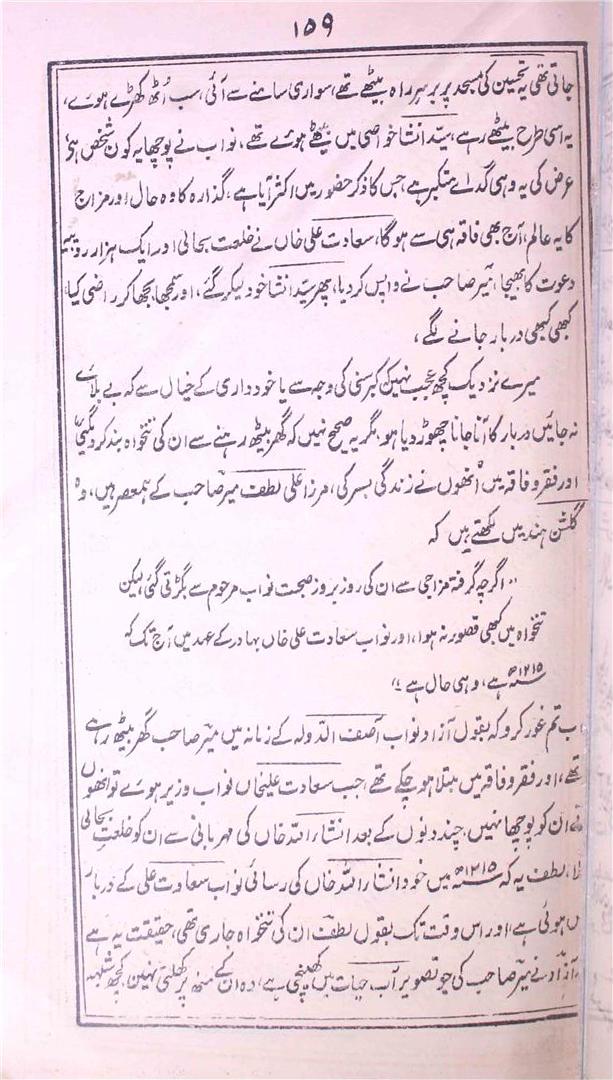 ۱۵۹
جاتی تھی یہ تحسین کی مسجد پر برسر راہ بیٹھے تھے، سواری سامنے سے آئی، سب اُٹھ کھڑے ہوئے،
یہ اسی طرح بیٹھے رہے، سیّد انشا خواصی میں بیٹھے ہوئے تھے، نواب نے پوچھا یہ کون شخص ہی؟
عرض کی یہ وہی گداے متکبر ہے، جس کا ذکر حضور میں اکثر آیا ہے، گذارہ کا وہ حال اور مزاج
کا یہ عالم، آج بھی فاقہ ہی سے ہوگا، سعادت علی خاں نے خلعت بحالی اور ایک ہزار روپیہ
دعوت کا بھیجا، میرؔ صاحب نے واپس کر دیا، پھر سیّد انشا خود لیکر گئے، اور سمجھا بجھا کر راضی کیا،
کبھی کبھی دربار جانے لگے،
میرے نزدیک کچھ عجب نہیں کبر سنی کی وجہ سے یا خود داری کے خیال سے کہ بے بلائے
نہ جائیں دربار کا آنا جانا چھوڑ دیا ہو، مگر یہ صحیح نہیں کہ گھر بیٹھ رہنے سے ان کی تنخواہ بند کر دیگئی
اور فقر و فاقہ میں اُنھوں نے زندگی بسر کی، مرزا علی لطف میر صاحب کے ہمعصر ہیں، وہ
گلشن ہند میں لکھتے ہیں کہ
"اگرچہ گرفتہ مزاجی سے ان کی روز بروز صحبت نواب مرحوم سے بگڑتی گئی، لیکن
تنخواہ میں کبھی قصور نہ ہوا، اور نواب سعادت علی خاں بہادر کے عہد میں آج تک کہ
۱۲۱۵ھ ہے، وہی حال ہے"
اب تم غور کرو کہ بقول آزاد نواب آصف الدولہ کے زمانہ میں میرؔ صاحب گھر بیٹھ رہے
تھے، اور فقر و فاقہ میں مبتلا ہو چکے تھے، جب سعادت علیخاں نواب وزیر ہوئے تو انھوں
نے ان کو پوچھا نہیں، چند دنوں کے بعد انشاء اللہ خاں کی مہربانی سے ان کو خلعت بحالی
ملا، لطف یہ کہ ۱۲۱۵ھ میں خود انشار اللہ خاں کی رسائی نواب سعادت علی کے دربار
میں ہوئی ہے، اور اس وقت تک بقول لطفؔ ان کی تنخواہ جاری تھی، حقیقت یہ ہے
آزاد نے میرؔ صاحب کی جو تصویر آب حیات میں کھینچی ہے، وہ ان کے منہ پر کھلتی نہیں، کچھ شبہہ